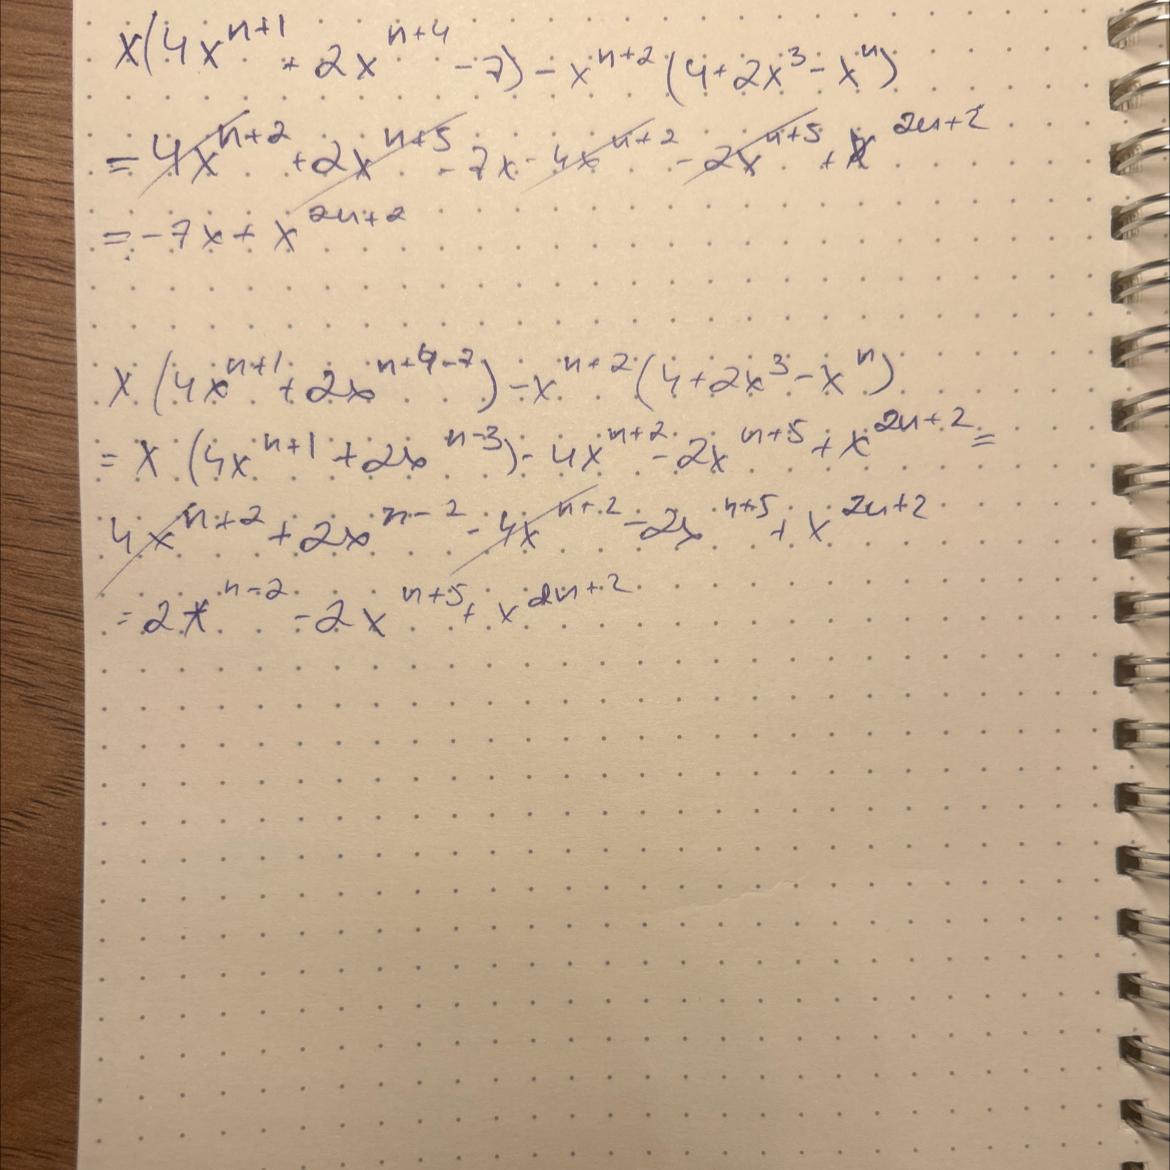 x(4x^{n+1} + 2x^{n+4} - 7) - x^{n+2} (4+2x^3 - x^n)
= 4x^{n+2} + 2x^{n+5} - 7x - 4x^{n+2} - 2x^{n+5} + x^{2n+2}
= -7x + x^{2n+2}
x (4x^{n+1} + 2x^{n+4-7}) - x^{n+2} (4+2x^3 - x^n)
= x (4x^{n+1} + 2x^{n-3}) - 4x^{n+2} - 2x^{n+5} + x^{2n+2} =
4x^{n+2} + 2x^{n-2} - 4x^{n+2} - 2x^{n+5} + x^{2n+2}
= 2x^{n-2} - 2x^{n+5} + x^{2n+2}